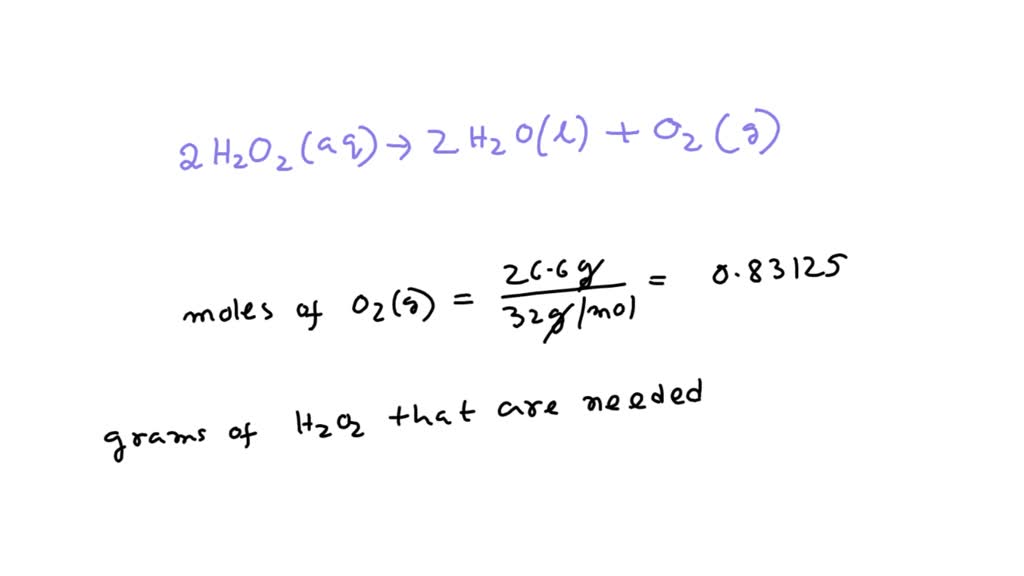 2H₂O₂(aq) → 2H₂O(l) + O₂(g)
moles of O₂(g) = 26.6g / 32g/mol = 0.83125
grams of H₂O₂ that are needed